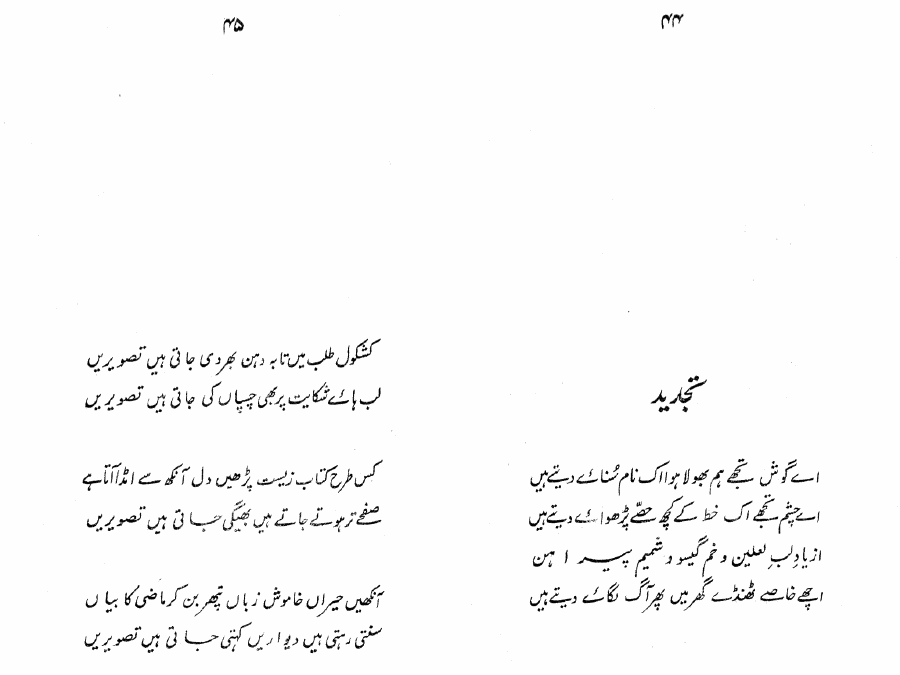 ۴۴
تجدید
اے گوش تجھے ہم بھولا ہوا اک نام سُنائے دیتے ہیں
اے چشم تجھے اک خط کے کچھ حصّے پڑھوائے دیتے ہیں
از یادِ لبِ لعلین و خم گیسو و شمیم پیراہن
اچھے خاصے ٹھنڈے گھر میں پھر آگ لگائے دیتے ہیں
۴۵
کشکول طلب میں تا بہ دہن بھر دی جاتی ہیں تصویریں
لب ہائے شکایت پر بھی چسپاں کی جاتی ہیں تصویریں
کس طرح کتاب زیست پڑھیں دل آنکھ سے امڈا آتا ہے
صفحے تر ہوتے جاتے ہیں بھیگی جاتی ہیں تصویریں
آنکھیں حیراں خاموش زباں پتھر بن کر ماضی کا بیاں
سنتی رہتی ہیں دیواریں کہتی جاتی ہیں تصویریں